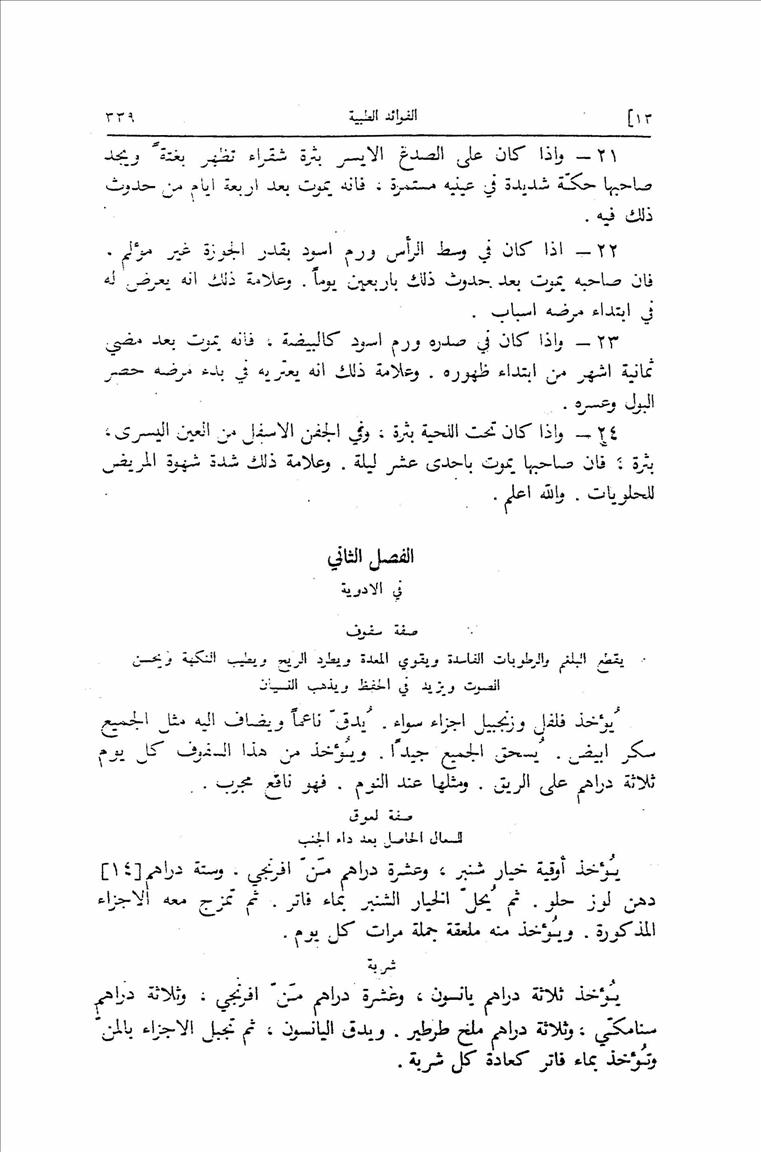 ١٣] الفوائد الطبية ٣٣٩
٢١ – واذا كان على الصدغ الايسر بثرة شقراء تظهر بغتةً ويجد
صاحبها حكّة شديدة في عينيه مستمرة ، فانه يموت بعد اربعة ايام من حدوث
ذلك فيه .
٢٢ – اذا كان في وسط الرأس ورم اسود بقدر الجوزة غير مؤلم .
فان صاحبه يموت بعد حدوث ذلك باربعين يوماً . وعلامة ذلك انه يعرض له
في ابتداء مرضه اسباب .
٢٣ – واذا كان في صدره ورم اسود كالبيضة ، فانه يموت بعد مضي
ثمانية اشهر من ابتداء ظهوره . وعلامة ذلك انه يعتريه في بدء مرضه حصر
البول وعسره .
٢٤ – واذا كان تحت اللحية بثرة ، وفي الجفن الاسفل من العين اليسرى ،
بثرة ؛ فان صاحبها يموت باحدى عشر ليلة . وعلامة ذلك شدة شهوة المريض
للحلويات . والله اعلم .
الفصل الثاني
في الادوية
صفة سفوف
يقطع البلغم والرطوبات الفاسدة ويقوي المعدة ويطرد الريح ويطيب النكهة ويحسن
الصوت ويزيد في الحفظ ويذهب النسيان
يُؤخذ فلفل وزنجبيل اجزاء سواء . يُدقّ ناعماً ويضاف اليه مثل الجميع
سكر ابيض . يُسحق الجميع جيداً . ويُؤخذ من هذا السفوف كل يوم
ثلاثة دراهم على الريق . ومثلها عند النوم . فهو نافع مجرب .
صفة لعوق
للسعال الحاصل بعد داء الجنب
يُؤخذ أوقية خيار شنبر ، وعشرة دراهم مَنّ افرنجي . وستة دراهم [١٤]
دهن لوز حلو . ثم يُحلّ الخيار الشنبر بماء فاتر . ثم تمزج معه الاجزاء
المذكورة . ويُؤخذ منه ملعقة جملة مرات كل يوم .
شربة
يُؤخذ ثلاثة دراهم يانسون ، وعشرة دراهم مَنّ افرنجي ، وثلاثة دراهم
سنامكّي ، وثلاثة دراهم ملح طرطير . ويدق اليانسون ، ثم تجبل الاجزاء بالمنّ
وتُؤخذ بماء فاتر كعادة كل شربة .